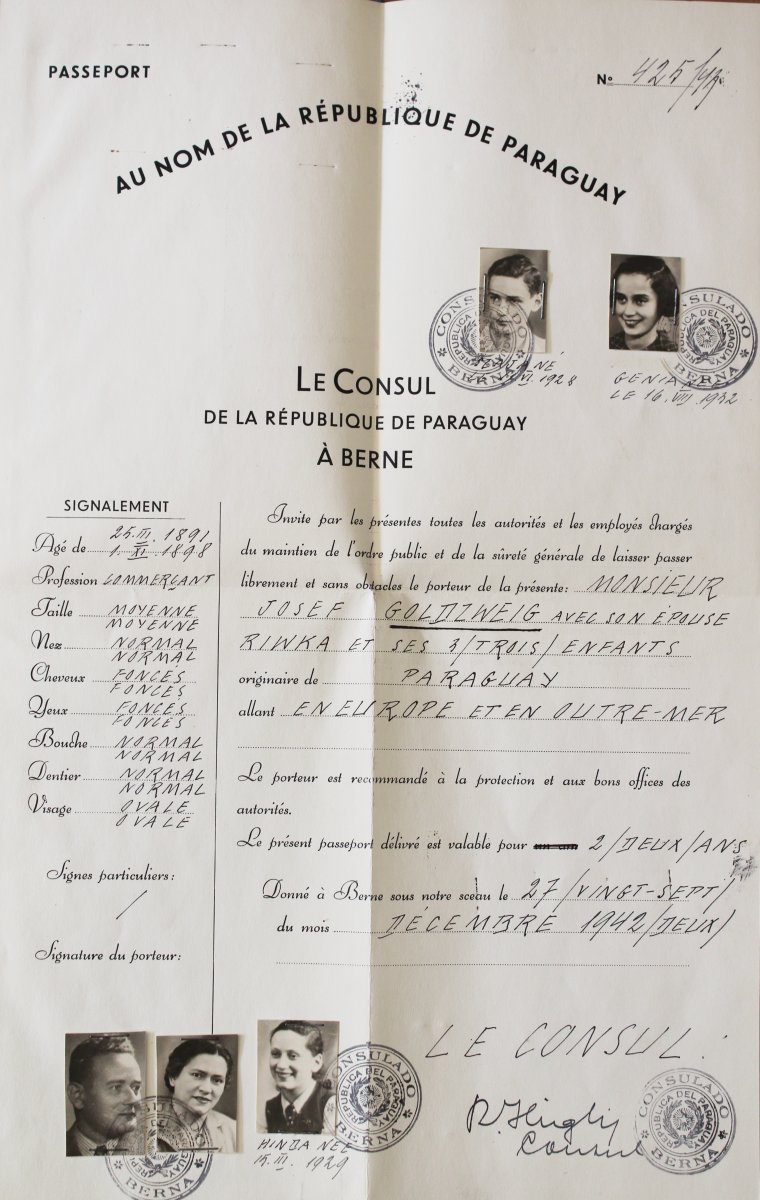 PASSEPORT
Nº 425/42
AU NOM DE LA RÉPUBLIQUE DE PARAGUAY
CONSULADO
REPÚBLICA DEL PARAGUAY
BERNA
NÉ
VI. 1928
CONSULADO
REPÚBLICA DEL PARAGUAY
BERNA
GENIA
LE 16. VIII. 1932
LE CONSUL
DE LA RÉPUBLIQUE DE PARAGUAY
À BERNE
SIGNALEMENT
25. III. 1891
Agé de 1. XI. 1898
Profession COMMERÇANT
Taille MOYENNE
MOYENNE
Nez NORMAL
NORMAL
Cheveux FONCÉS
FONCÉS
Yeux FONCÉS
FONCÉS
Bouche NORMAL
NORMAL
Dentier NORMAL
NORMAL
Visage OVALE
OVALE
Signes particuliers:
/
Signature du porteur:
Invite par les présentes toutes les autorités et les employés chargés
du maintien de l'ordre public et de la sûreté générale de laisser passer
librement et sans obstacles le porteur de la présente: MONSIEUR
JOSEF GOLDZWEIG AVEC SON ÉPOUSE
RIWKA ET SES 3/TROIS/ ENFANTS
originaire de PARAGUAY
allant EN EUROPE ET EN OUTRE-MER
Le porteur est recommandé à la protection et aux bons offices des
autorités.
Le présent passeport délivré est valable pour 2/DEUX/ANS
Donné à Berne sous notre sceau le 27/VINGT-SEPT/
du mois DÉCEMBRE 1942/DEUX/
LE CONSUL:
R. Hügli
Consul
CONSULADO
REPÚBLICA DEL PARAGUAY
BERNA
HINDA NÉE
15. III. 1929
CONSULADO
REPÚBLICA DEL PARAGUAY
BERNA
CONSULADO
REPÚBLICA DEL PARAGUAY
BERNA